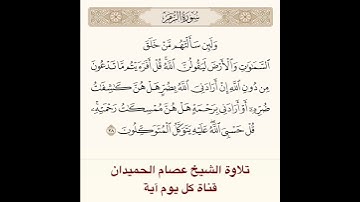 سُورَةُ الزُّمَرِ
وَلَئِن سَأَلْتَهُم مَّنْ خَلَقَ
السَّمَٰوَٰتِ وَالْأَرْضَ لَيَقُولُنَّ اللَّهُ قُلْ أَفَرَءَيْتُم مَّا تَدْعُونَ
مِن دُونِ اللَّهِ إِنْ أَرَادَنِيَ اللَّهُ بِضُرٍّ هَلْ هُنَّ كَٰشِفَٰتُ
ضُرِّهِ أَوْ أَرَادَنِي بِرَحْمَةٍ هَلْ هُنَّ مُمْسِكَٰتُ رَحْمَتِهِ
قُلْ حَسْبِيَ اللَّهُ عَلَيْهِ يَتَوَكَّلُ الْمُتَوَكِّلُونَ ٣٨
تلاوة الشيخ عصام الحميدان
قناة كل يوم آية